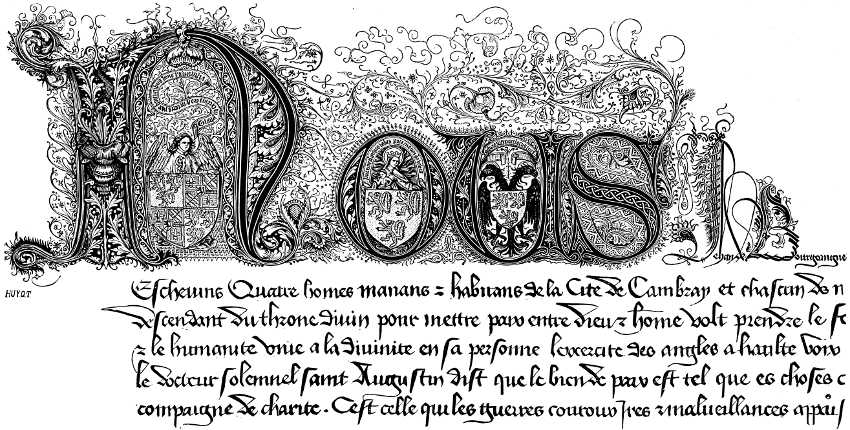 Nous
HUYOT
Eschevins Quatre homes manans ⁊ habitans de la Cite de Cambray et chascun de n
descendant du throne divin pour mettre paix entre dieu ⁊ home volt prendre le fe
⁊ le humanite unie a la divinite en sa personne lexercite des angles a haulte voix
le docteur solemnel saint Augustin dist que le bien de paix est tel que es choses c
compaigne de charite . Cest celle qui les guerres ⁊ malveillances